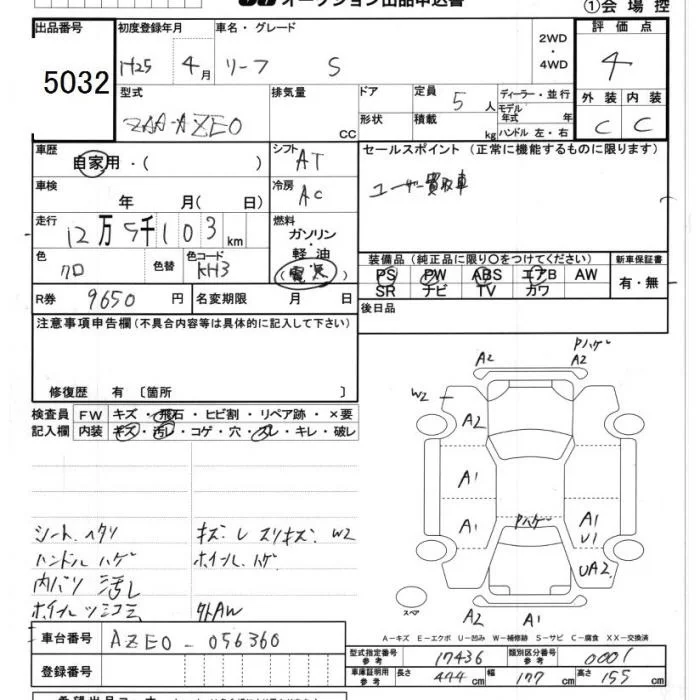 オークション出品申込書 ①会場控
出品番号 初度登録年月 車名・グレード 2WD・4WD 評価点
5032 H25 4月 リーフ S 4
型式 排気量 ドア 定員 ディーラー・並行 外装 内装
ZAA-AZE0 CC 5人 モデル年式 年 C C
形状 積載 kg ハンドル 左・右
車歴 シフト AT セールスポイント (正常に機能するものに限ります)
自家用・( ) ユーザー買取車
車検 冷房 AC
年 月( 日)
走行 燃料
12万5千103km ガソリン・軽油
色 色替 色コード (電気)
クロ KH3
装備品 (純正品に限り○をつけてください) 新車保証書
PS PW ABS エアB AW 有・無
SR ナビ TV カワ
R券 9650円 名変期限 月 日
後日品
注意事項申告欄 (不具合内容等は具体的に記入して下さい)
修復歴 有 〔箇所 〕
検査員 FW キズ・飛石・ヒビ割・リペア跡・×要
記入欄 内装 キズ・汚レ・コゲ・穴・スレ・キレ・破レ
シート ヘタリ
ハンドル ハゲ
内バリ 汚レ
キズ レ スリキズ W2
ホイール ハゲ
外AW
Pハゲ
A2 A2
W2
A2
A1
Pハゲ
A1 A1
U1
UA2
スペア
A2 A1
A-キズ E-エクボ U-凹み W-補修跡 S-サビ C-腐食 XX-交換済
車台番号 AZE0-056360
登録番号
型式指定番号 参考 17436 類別区分番号 参考 0001
車庫証明用 参考 長さ 444cm 幅 177cm 高さ 155cm